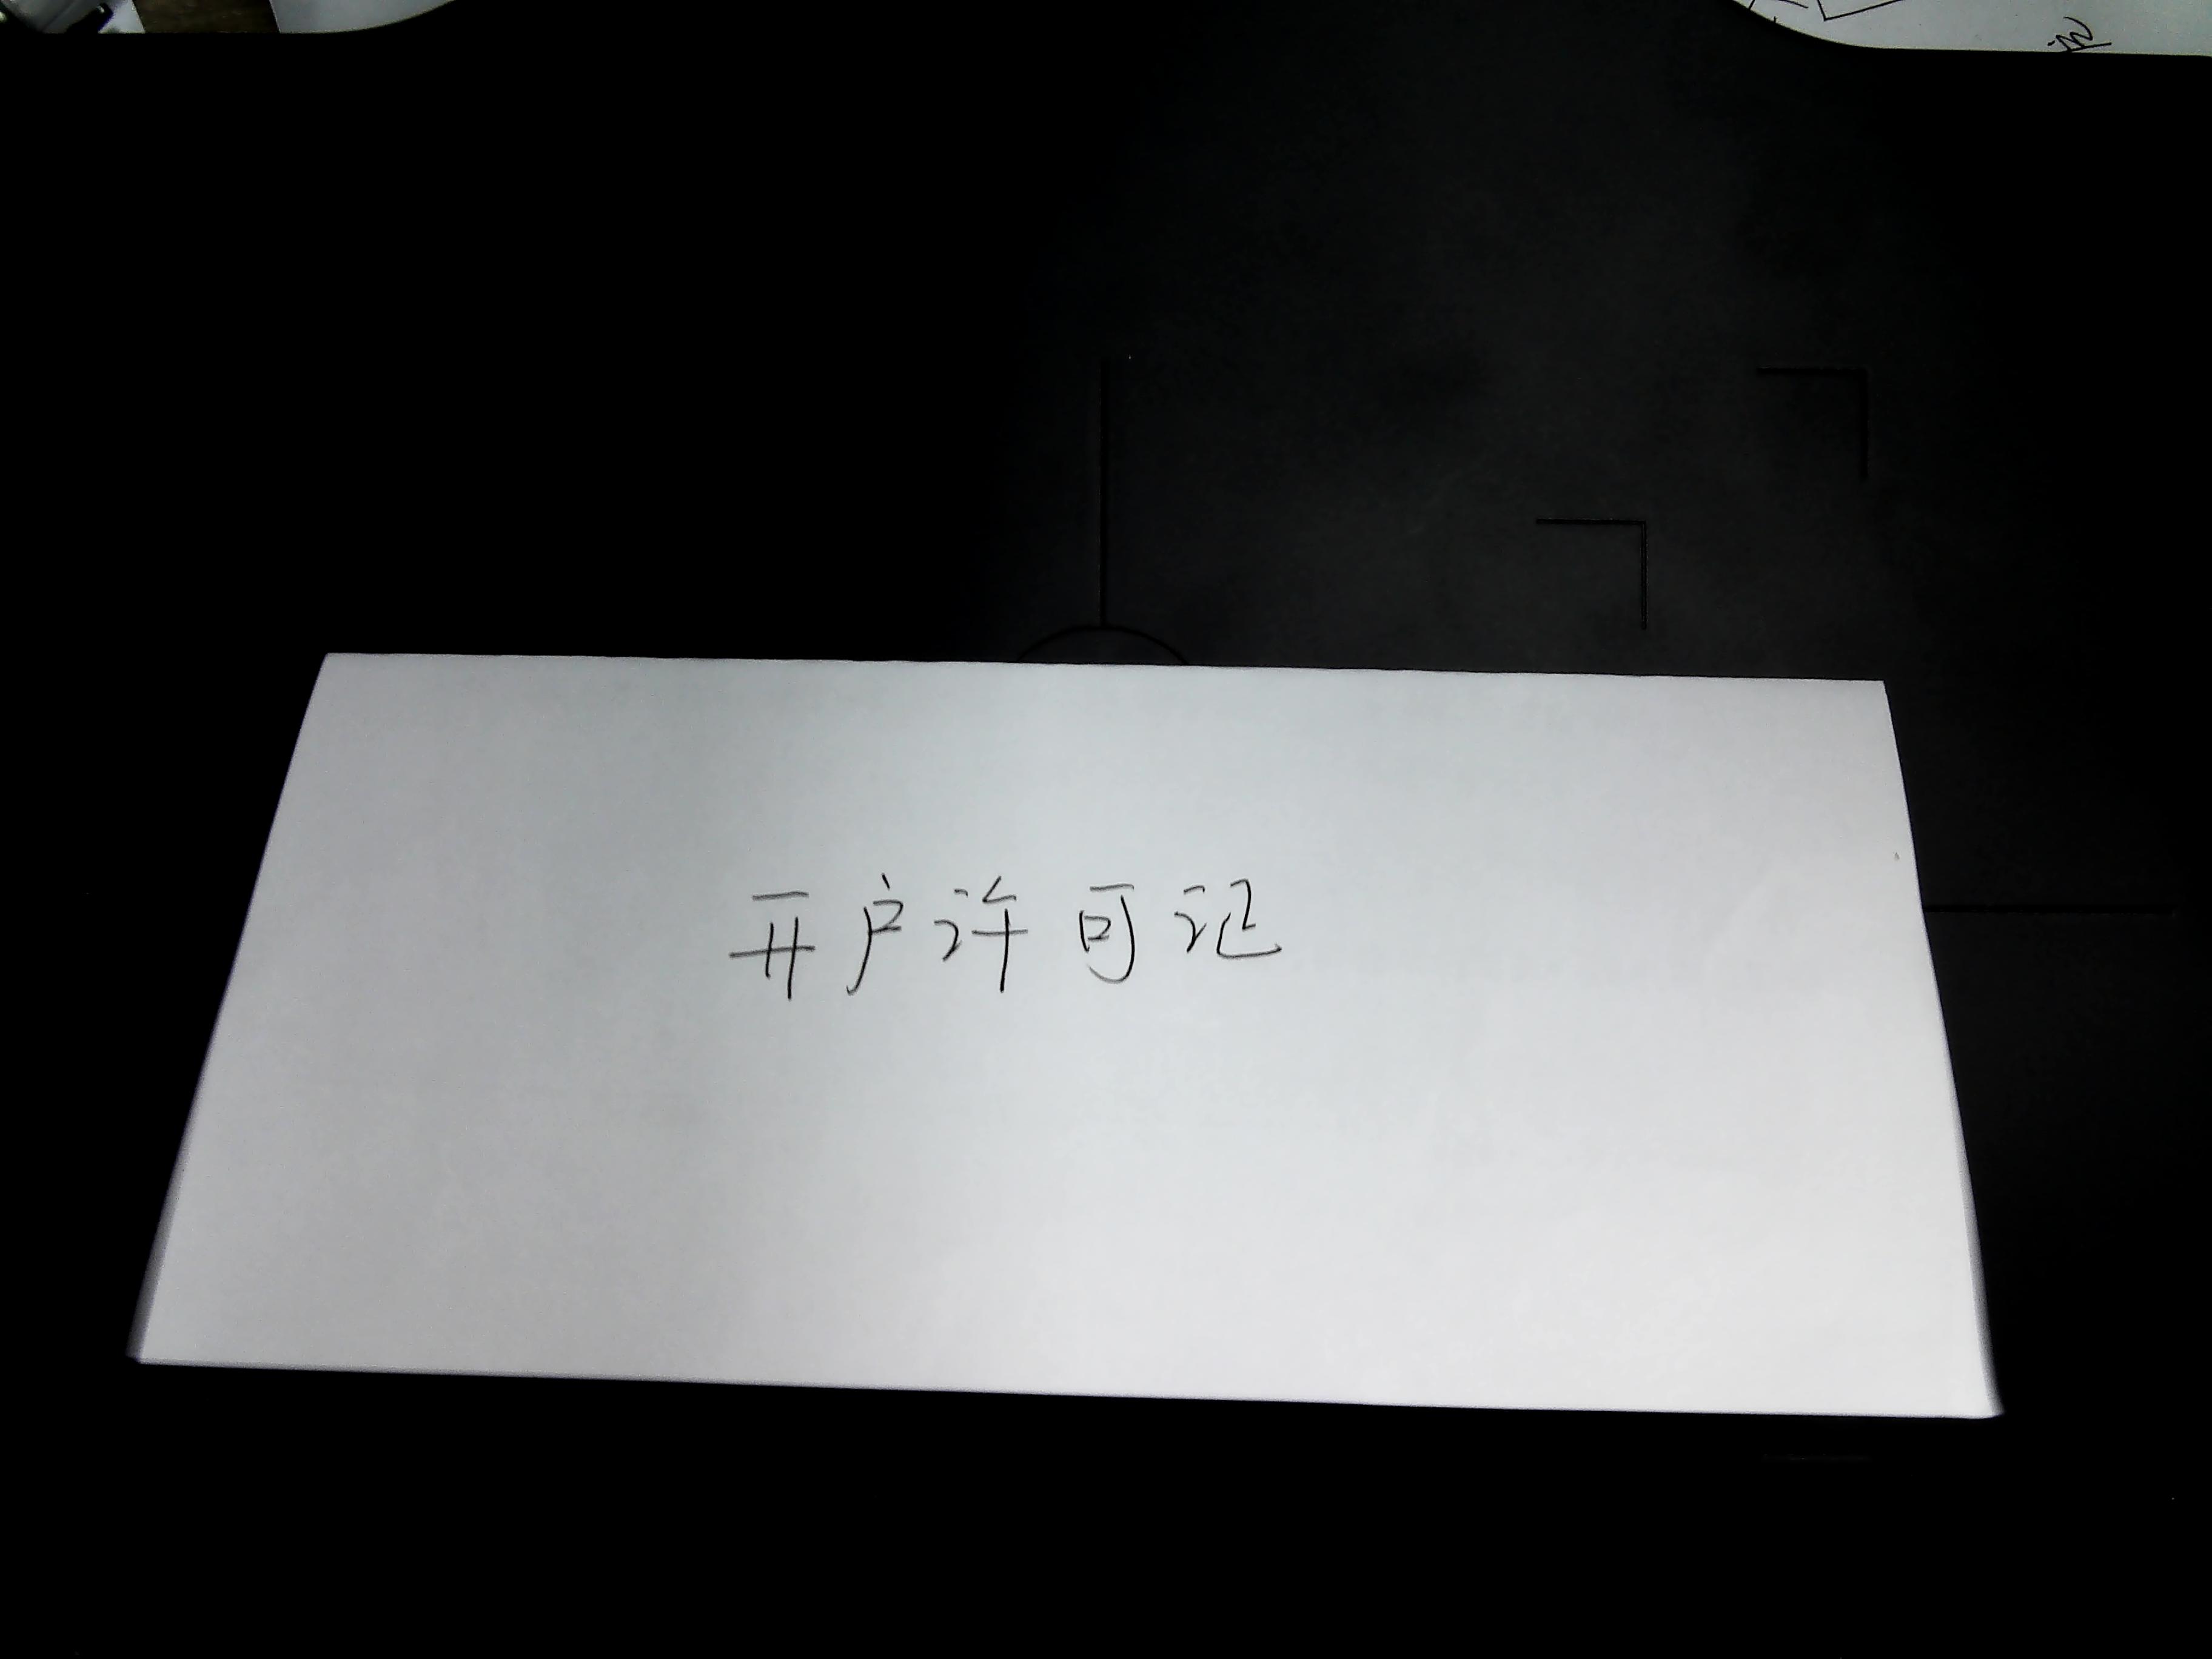 开户许可记